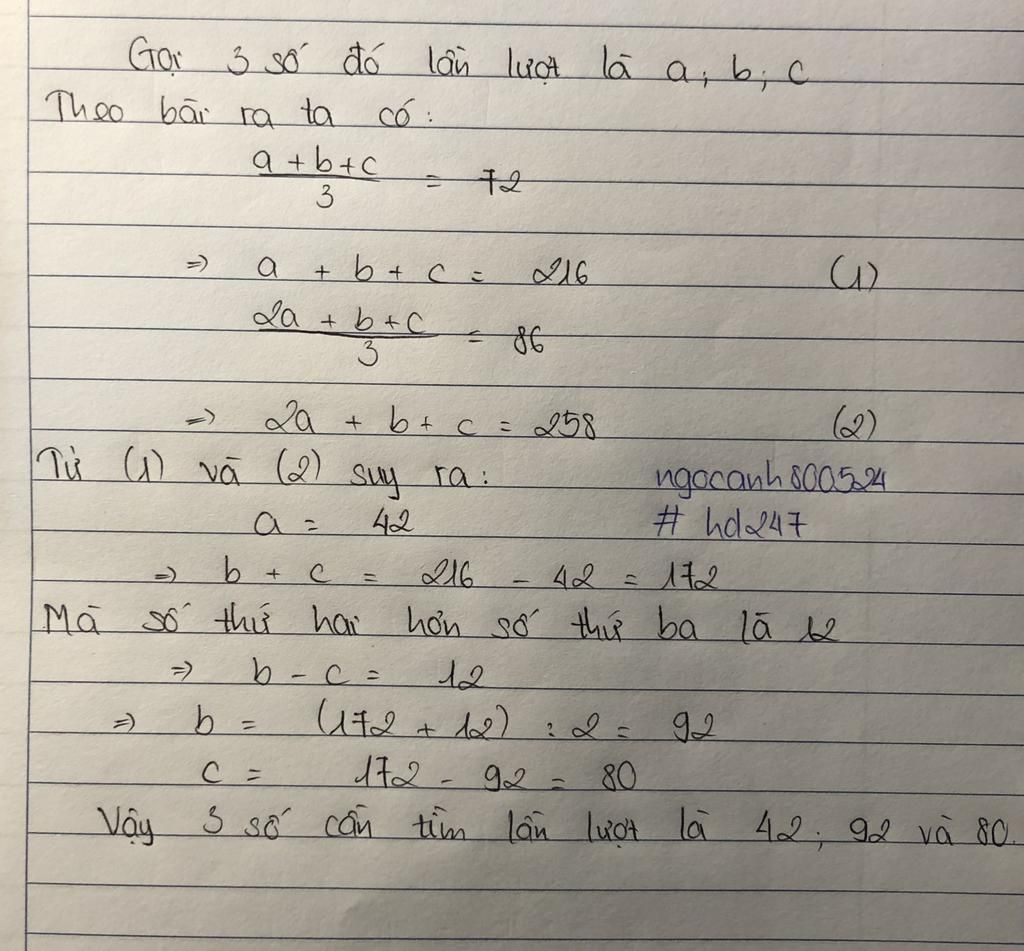 Gọi 3 số đó lần lượt là a; b; c
Theo bài ra ta có:
a + b + c / 3 = 72
=> a + b + c = 216 (1)
2a + b + c / 3 = 86
=> 2a + b + c = 258 (2)
Từ (1) và (2) suy ra: ngocanh800524
a = 42 # hd247
=> b + c = 216 - 42 = 172
Mà số thứ hai hơn số thứ ba là 12
=> b - c = 12
=> b = (172 + 12) : 2 = 92
c = 172 - 92 = 80
Vậy 3 số cần tìm lần lượt là 42; 92 và 80.